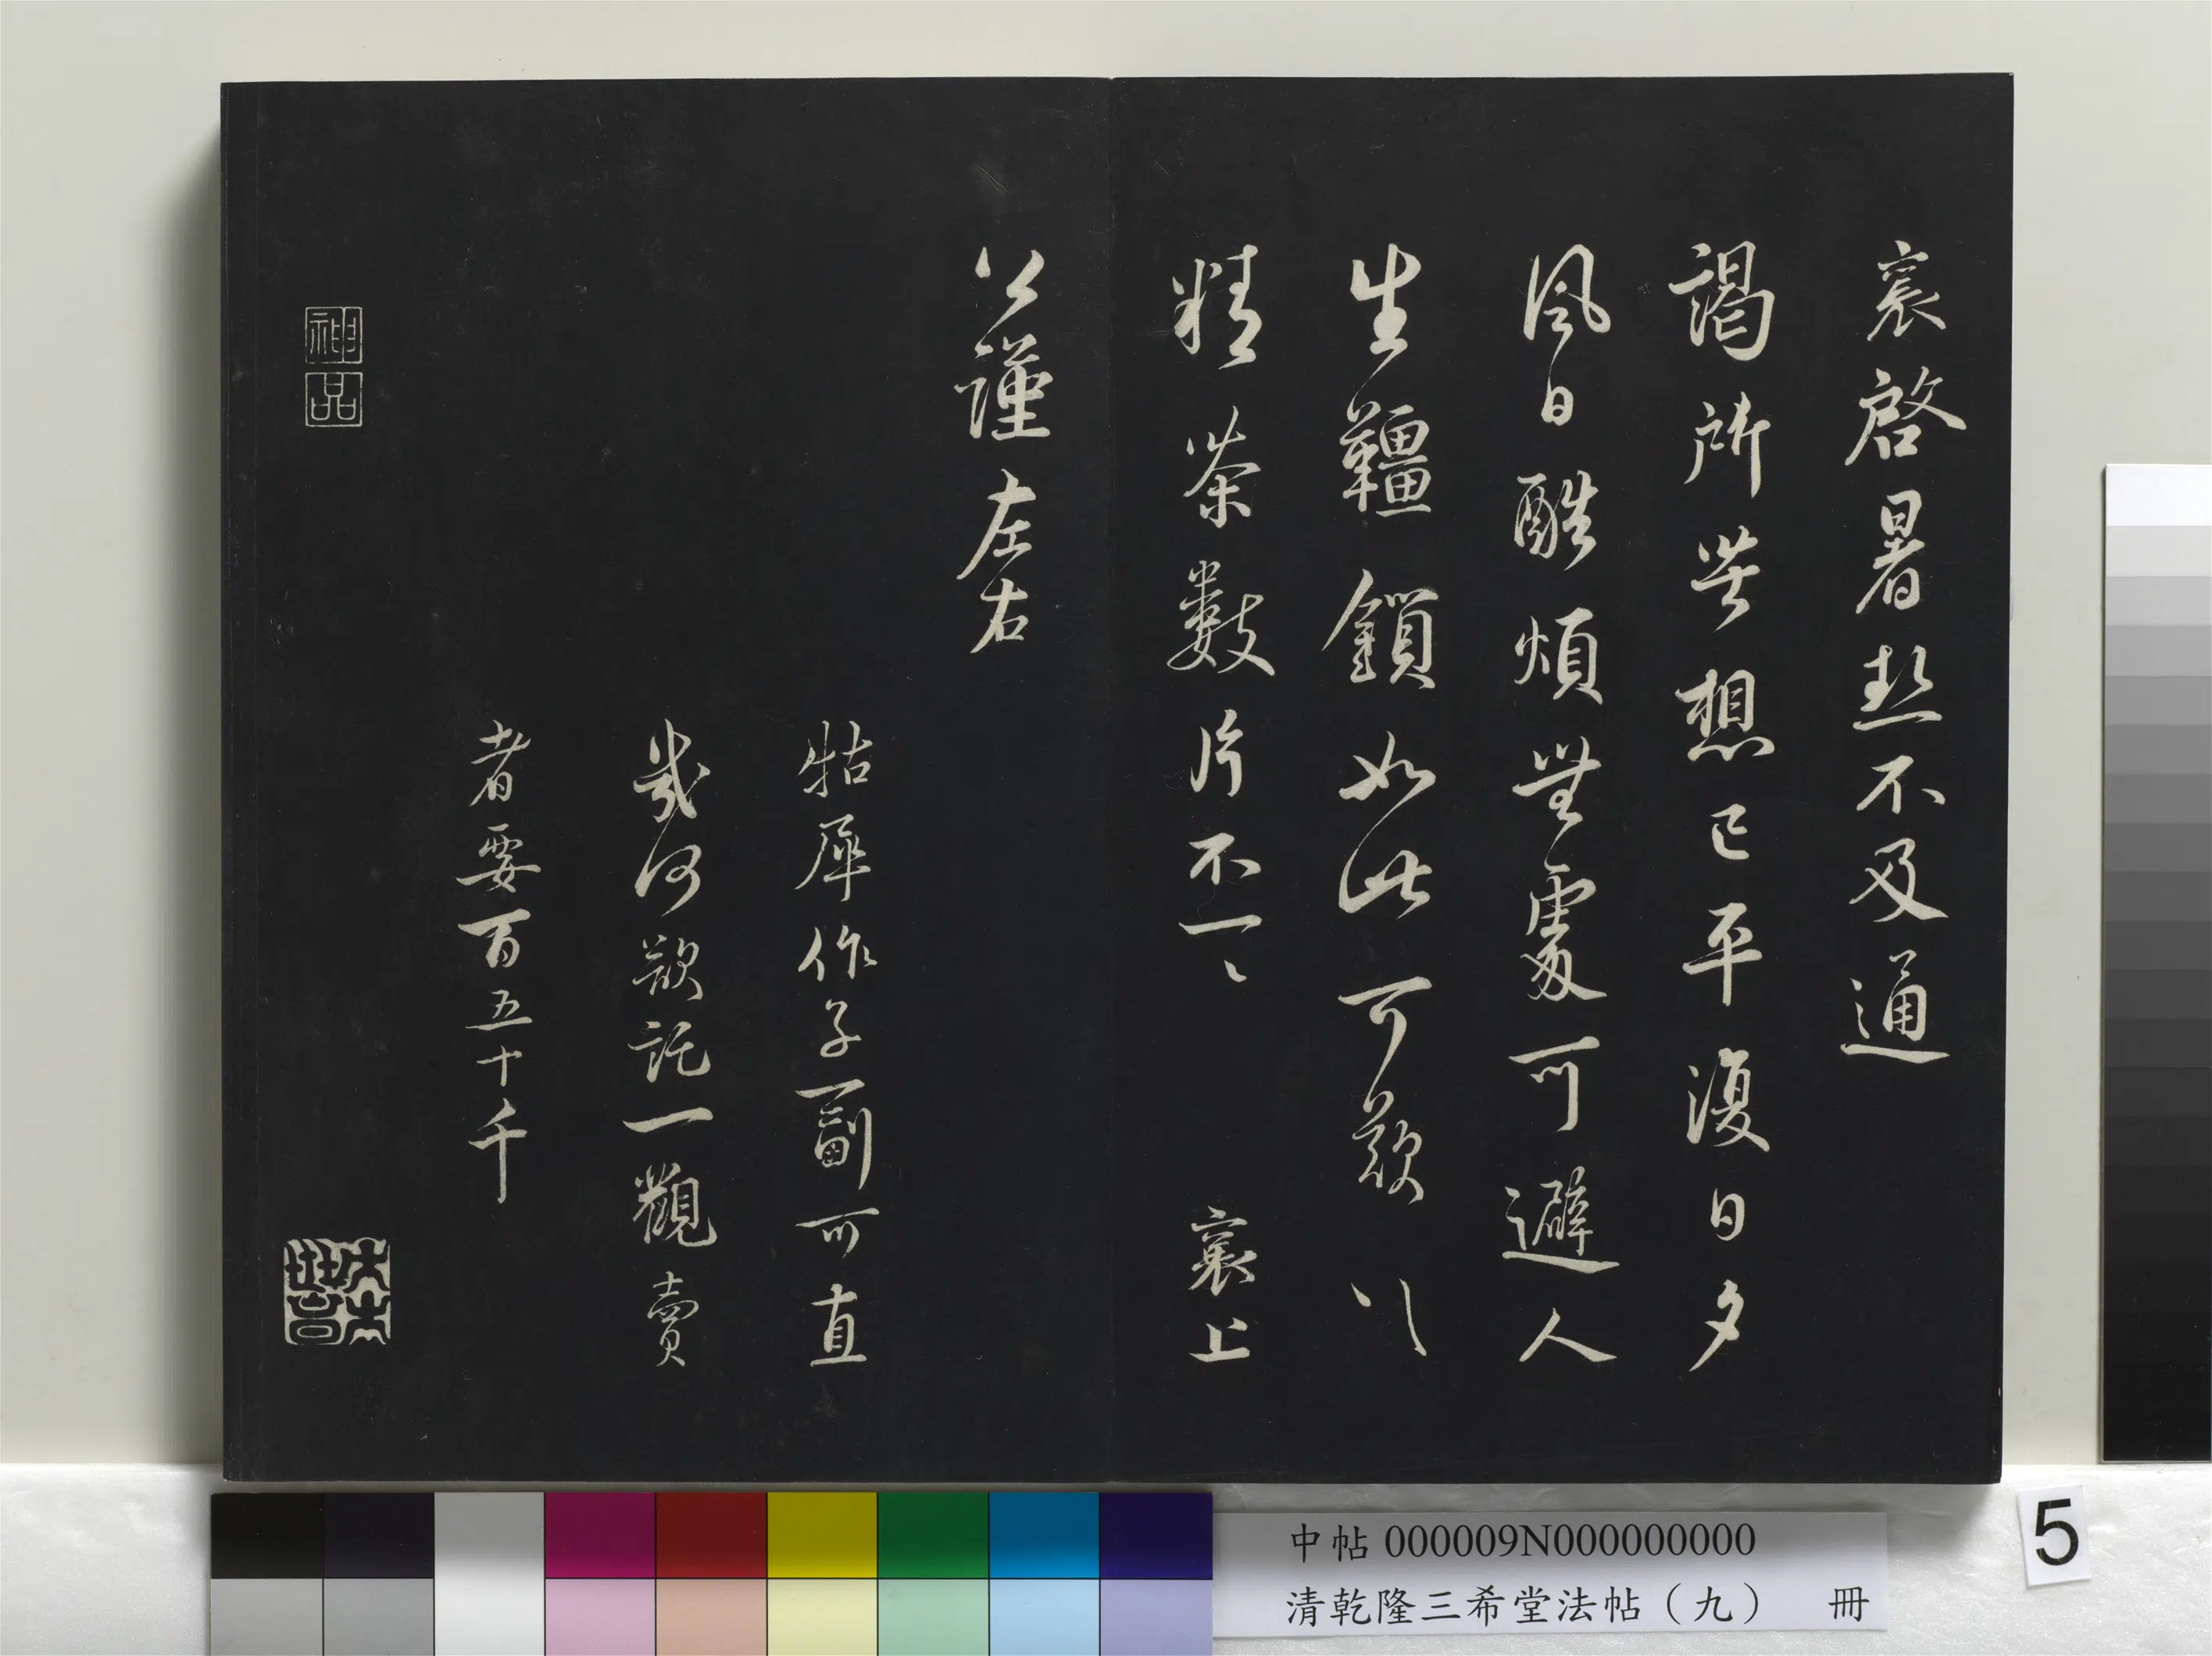 襄啓暑熱不及通
謁所苦想已平復日夕
風日酷煩無處可避人
生韁鎖如此可歎〻
精茶數片不一〻
襄上
公謹左右
牯犀作子一副可直
幾何欲託一觀賣
者要百五十千
神品
中帖 000009N000000000
清乾隆三希堂法帖（九） 冊
5